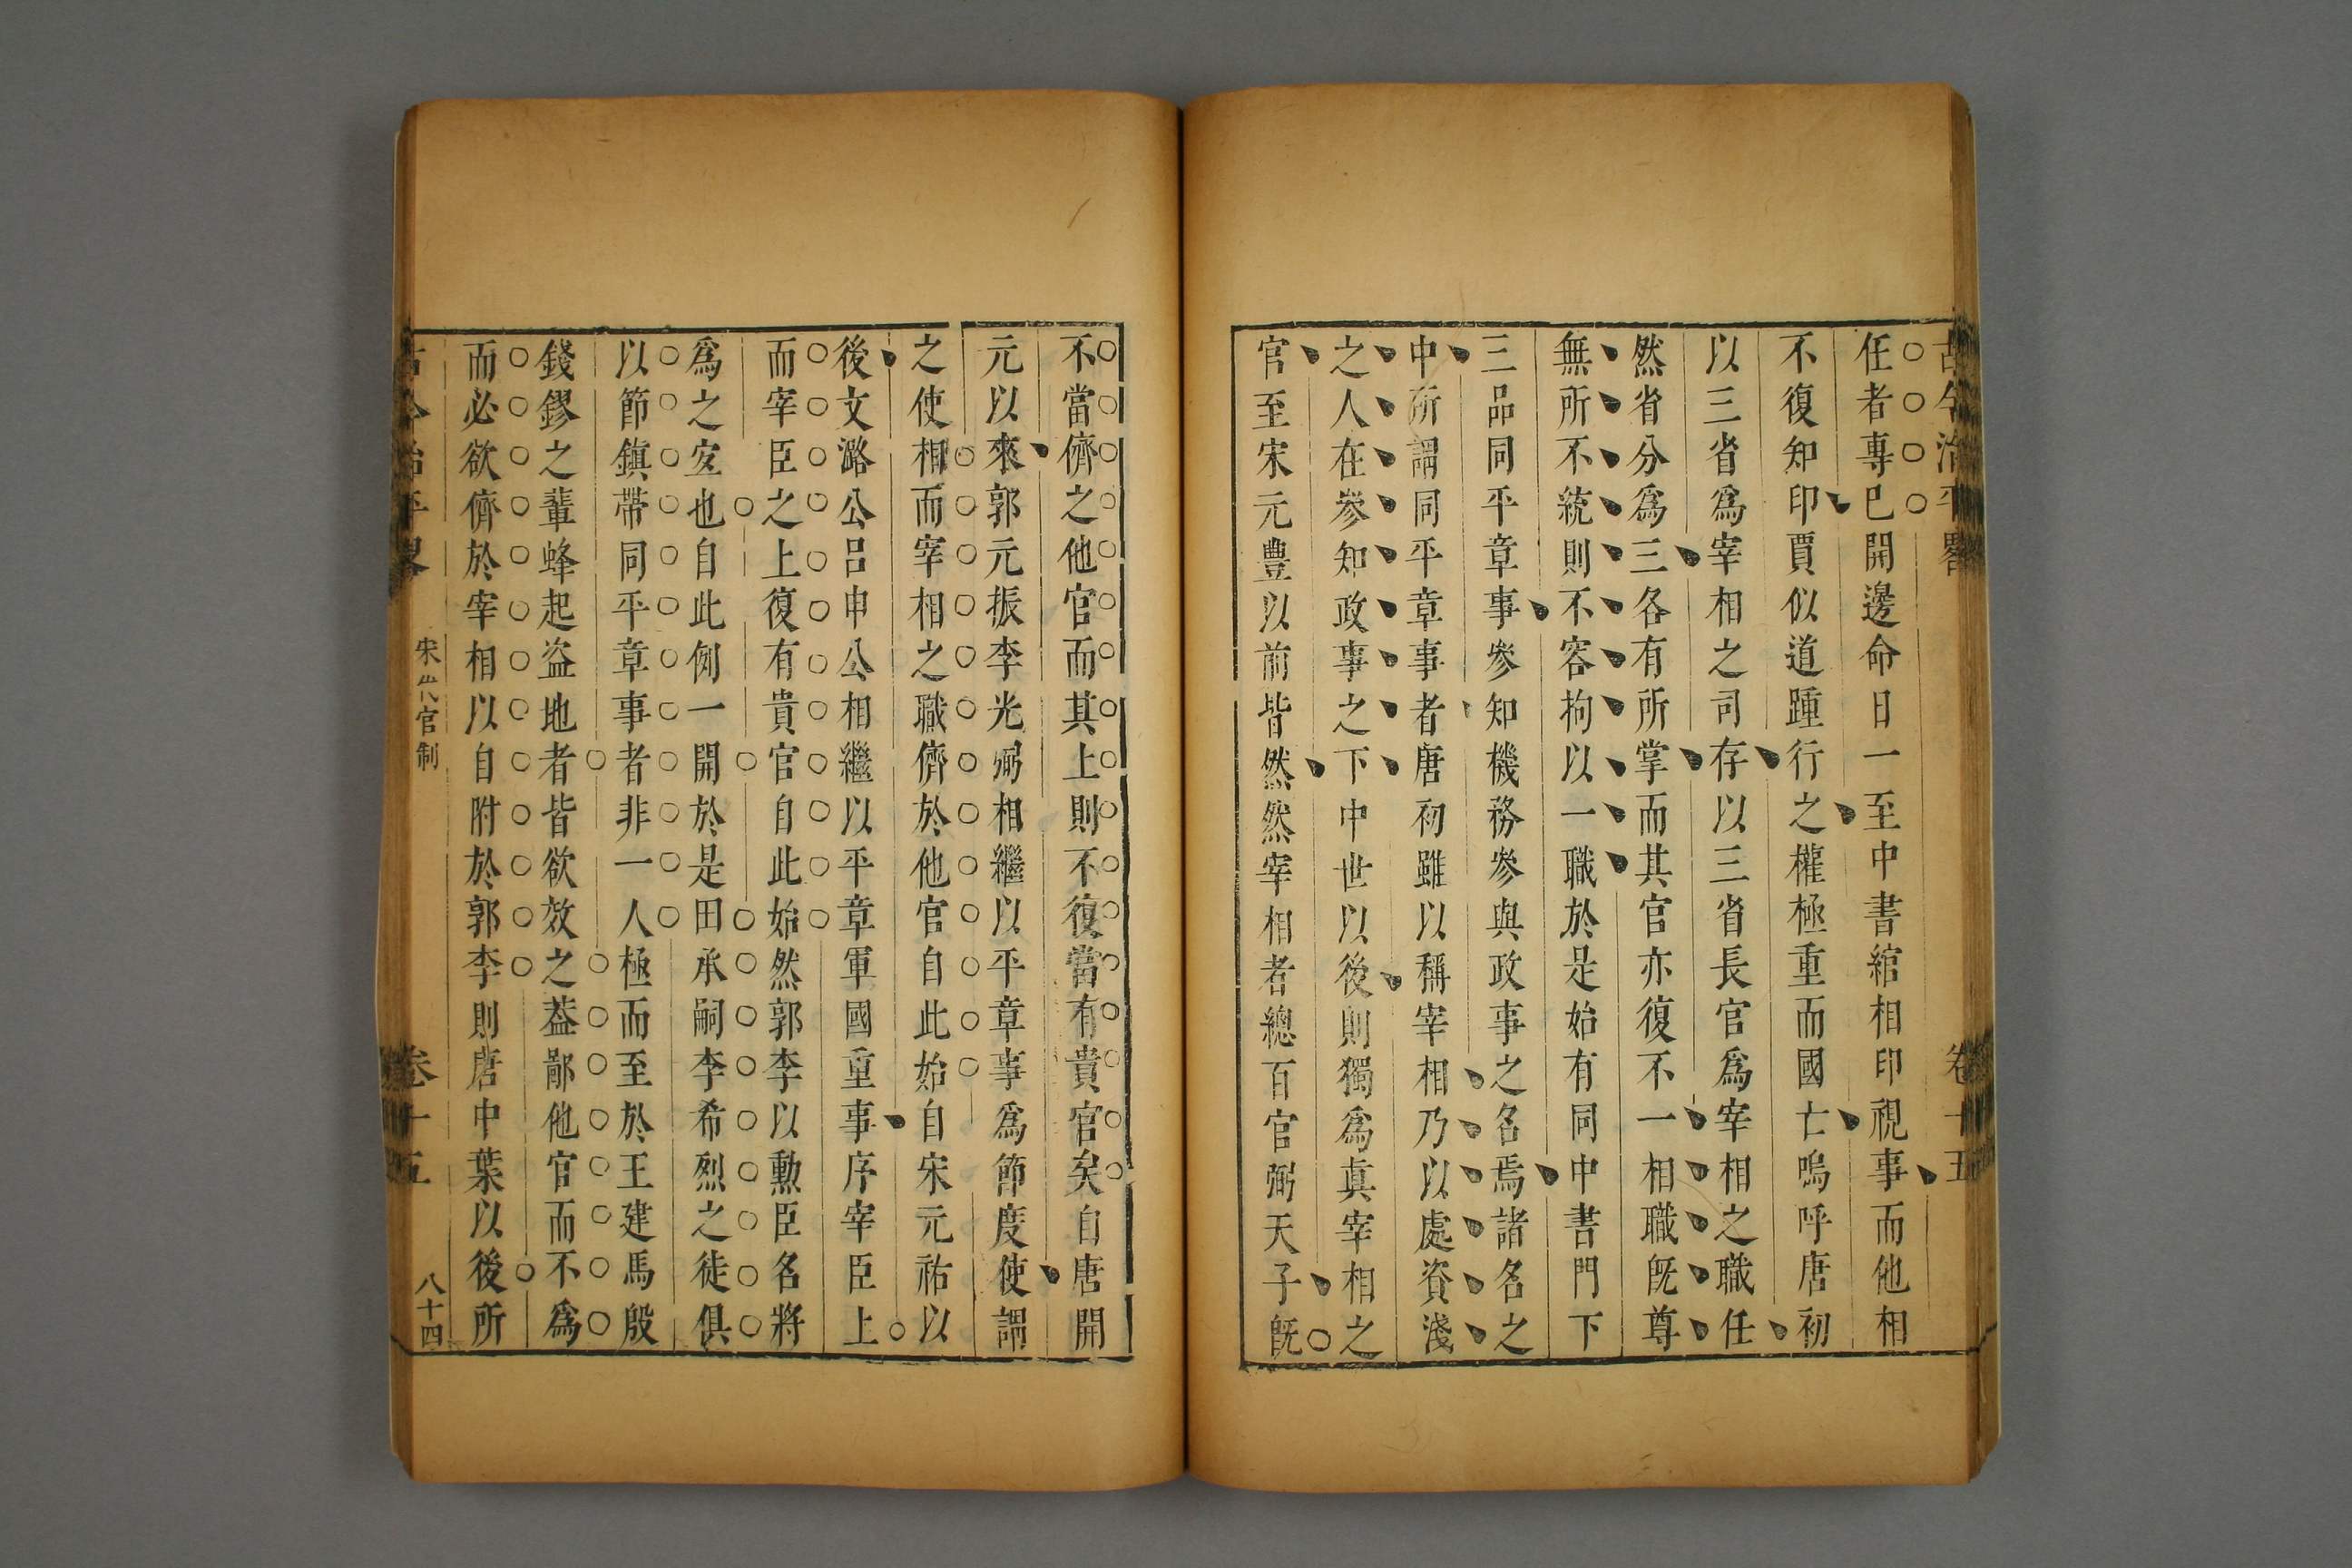 古今治平畧 卷十五
任者專已開邊命日一至中書綰相印視事而他相
不復知印賈似道踵行之權極重而國亡嗚呼唐初
以三省爲宰相之司存以三省長官爲宰相之職任
然省分爲三各有所掌而其官亦復不一相職旣尊
無所不統則不容拘以一職於是始有同中書門下
三品同平章事叅知機務叅與政事之名焉諸名之
中所謂同平章事者唐初雖以稱宰相乃以處資淺
之人在叅知政事之下中世以後則獨爲眞宰相之
官至宋元豐以前皆然然宰相者總百官弼天子旣
不當儕之他官而其上則不復當有貴官矣自唐開
元以來郭元振李光弼相繼以平章事爲節度使謂
之使相而宰相之職儕於他官自此始自宋元祐以
後文潞公呂申公相繼以平章軍國重事序宰臣上
而宰臣之上復有貴官自此始然郭李以勲臣名將
爲之宐也自此例一開於是田承嗣李希烈之徒俱
以節鎮帶同平章事者非一人極而至於王建馬殷
錢鏐之輩蜂起盜地者皆欲效之葢鄙他官而不爲
而必欲儕於宰相以自附於郭李則唐中葉以後所
古今治平畧 宋代官制 卷十五 八十四